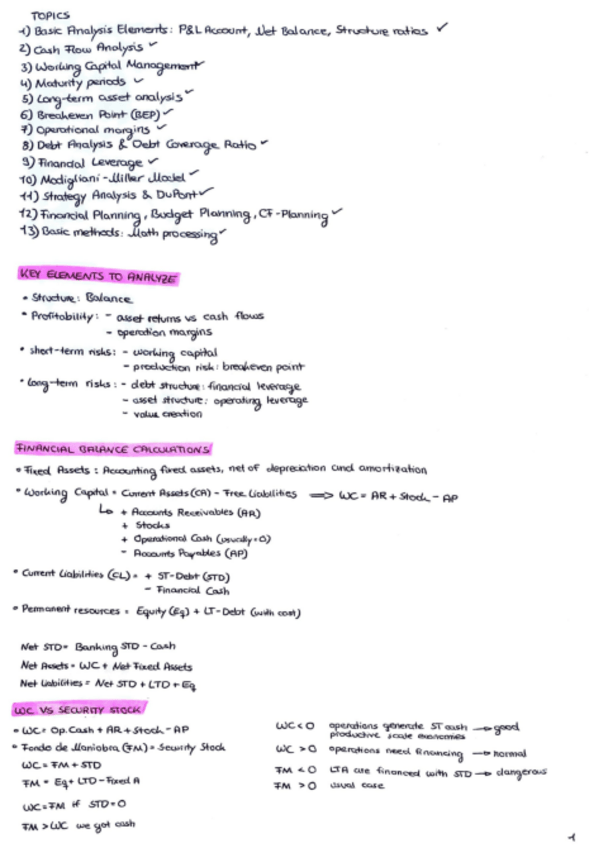 TOPICS
1) Basic Analysis Elements: P&L Account, Net Balance, Structure ratios ✓
2) Cash Flow Analysis ✓
3) Working Capital Management ✓
4) Maturity periods ✓
5) Long-term asset analysis ✓
6) Breakeven Point (BEP) ✓
7) Operational margins ✓
8) Debt Analysis & Debt Coverage Ratio ✓
9) Financial Leverage ✓
10) Modigliani-Miller Model ✓
11) Strategy Analysis & DuPont ✓
12) Financial Planning, Budget Planning, CF-Planning ✓
13) Basic methods: Math processing ✓
KEY ELEMENTS TO ANALYZE
• Structure: Balance
• Profitability: - asset returns vs cash flows
- operation margins
• short-term risks: - working capital
- production risk: breakeven point
• long-term risks: - debt structure: financial leverage
- asset structure: operating leverage
- value creation
FINANCIAL BALANCE CALCULATIONS
• Fixed Assets: Accounting fixed assets, net of depreciation and amortization
• Working Capital = Current Assets (CA) - Free Liabilities ⟹ WC = AR + Stock - AP
↳ + Accounts Receivables (AR)
+ Stocks
+ Operational Cash (usually=0)
- Accounts Payables (AP)
• Current Liabilities (CL) = + ST-Debt (STD)
- Financial Cash
• Permanent resources = Equity (Eq) + LT-Debt (with cost)
Net STD = Banking STD - Cash
Net Assets = WC + Net Fixed Assets
Net Liabilities = Net STD + LTD + Eq
WC VS SECURITY STOCK
• WC = Op. Cash + AR + Stock - AP
• Fondo de Maniobra (FM) = Security Stock
WC = FM + STD
FM = Eq + LTD - Fixed A
WC = FM if STD = 0
FM > WC we got cash
WC < 0 operations generate ST cash → good
productive scale economies
WC > 0 operations need financing → normal
FM < 0 LTA are financed with STD → dangerous
FM > 0 usual case
1